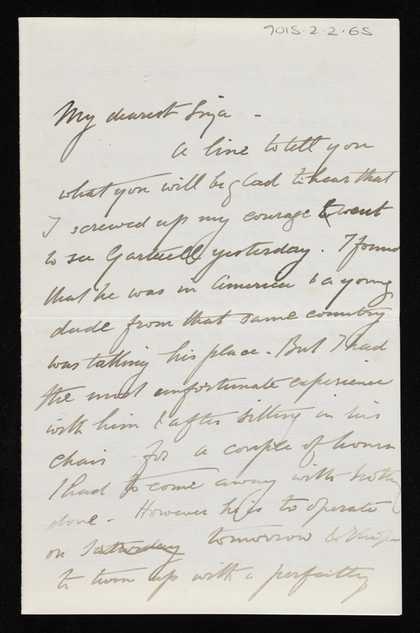 7015.2.2.65
My dearest
A line to tell you
what you will be glad to hear that
I screwed up my courage & went
to see yesterday. I found
that he was in America & a young
dude from that same country
was taking his place. But I had
the most unfortunate experience
with him & after sitting in his
chair for a couple of hours
I had to come away with
done. However he is to operate
on Saturday tomorrow
to turn up with a perfectly